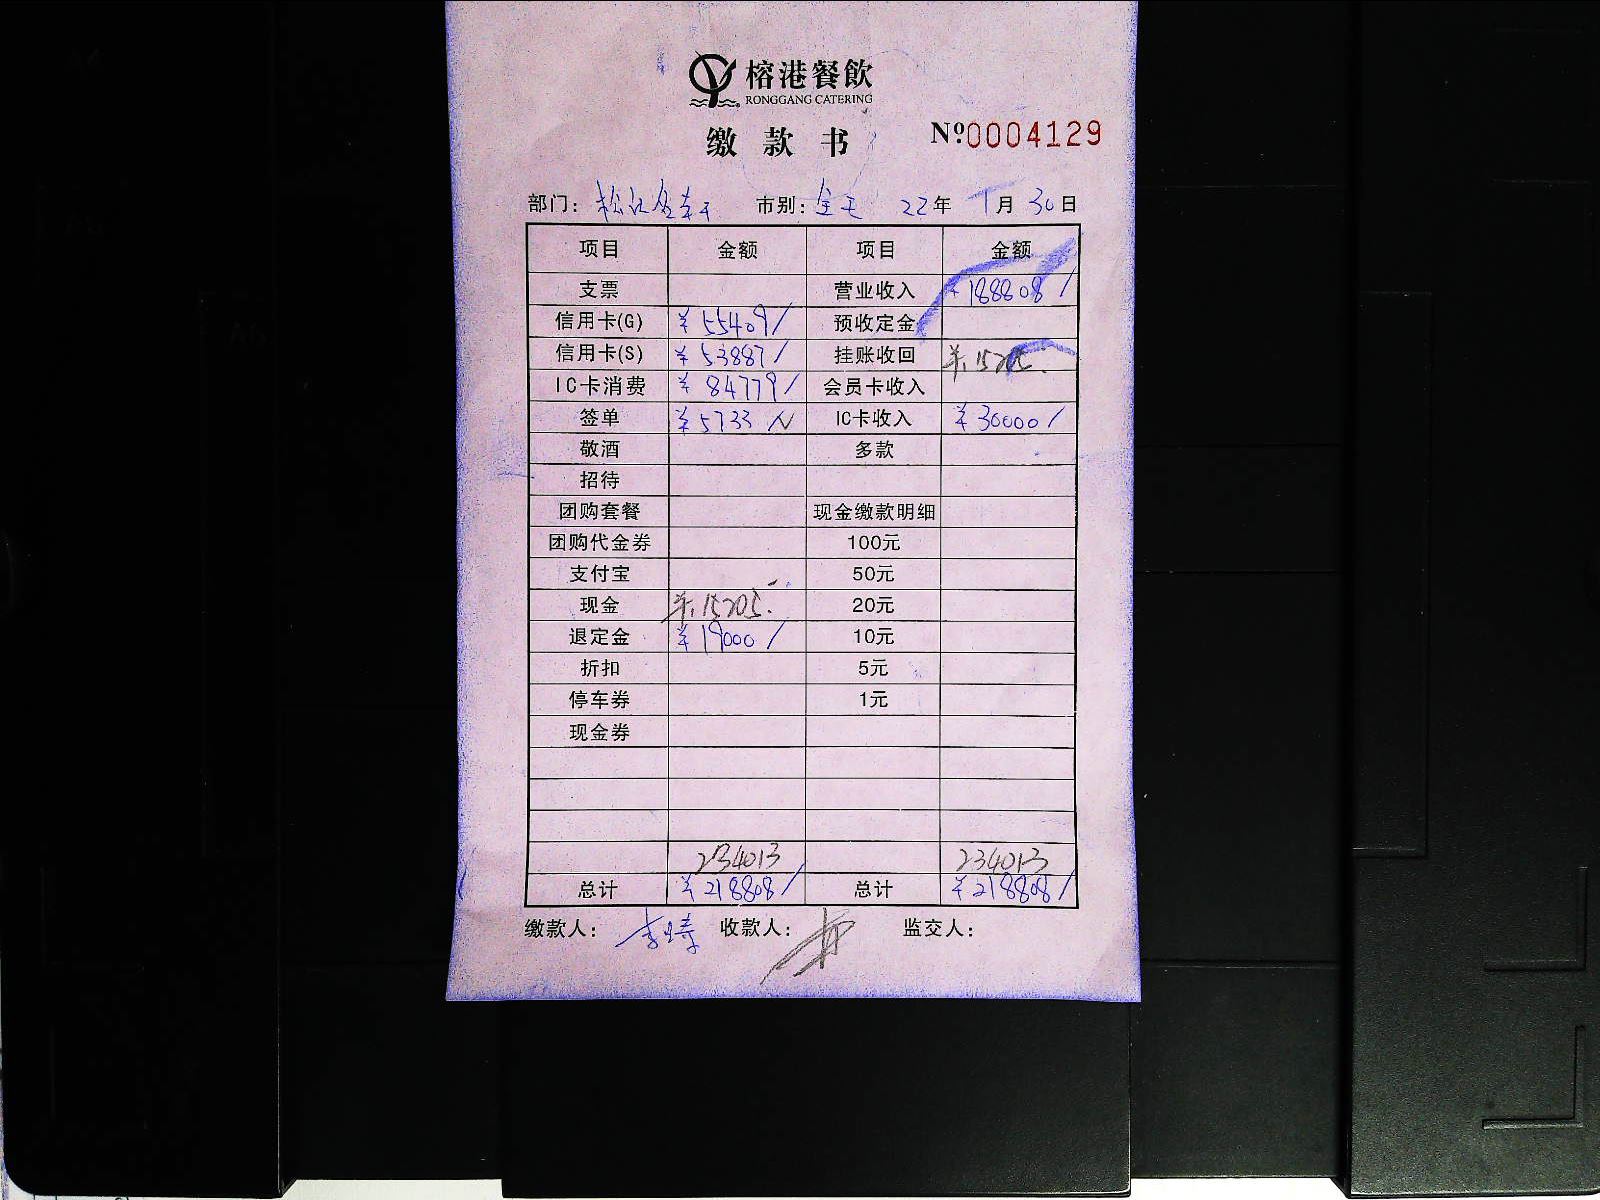 榕港餐飲
RONGGANG CATERING
缴款书 Nº0004129
部门: 松江 市别: 全天 22年 1月 30日
项目 金额 项目 金额
支票 营业收入 ¥188808/
信用卡(G) ¥55409/ 预收定金
信用卡(S) ¥53887/ 挂账收回 ¥15205.
IC卡消费 ¥84779/ 会员卡收入
签单 ¥5733 IC卡收入 ¥30000/
敬酒 多款
招待
团购套餐 现金缴款明细
团购代金券 100元
支付宝 50元
现金 ¥15205. 20元
退定金 ¥19000/ 10元
折扣 5元
停车券 1元
现金券
234013 234013
总计 ¥218808/ 总计 ¥218808/
缴款人: 李 收款人: 监交人: